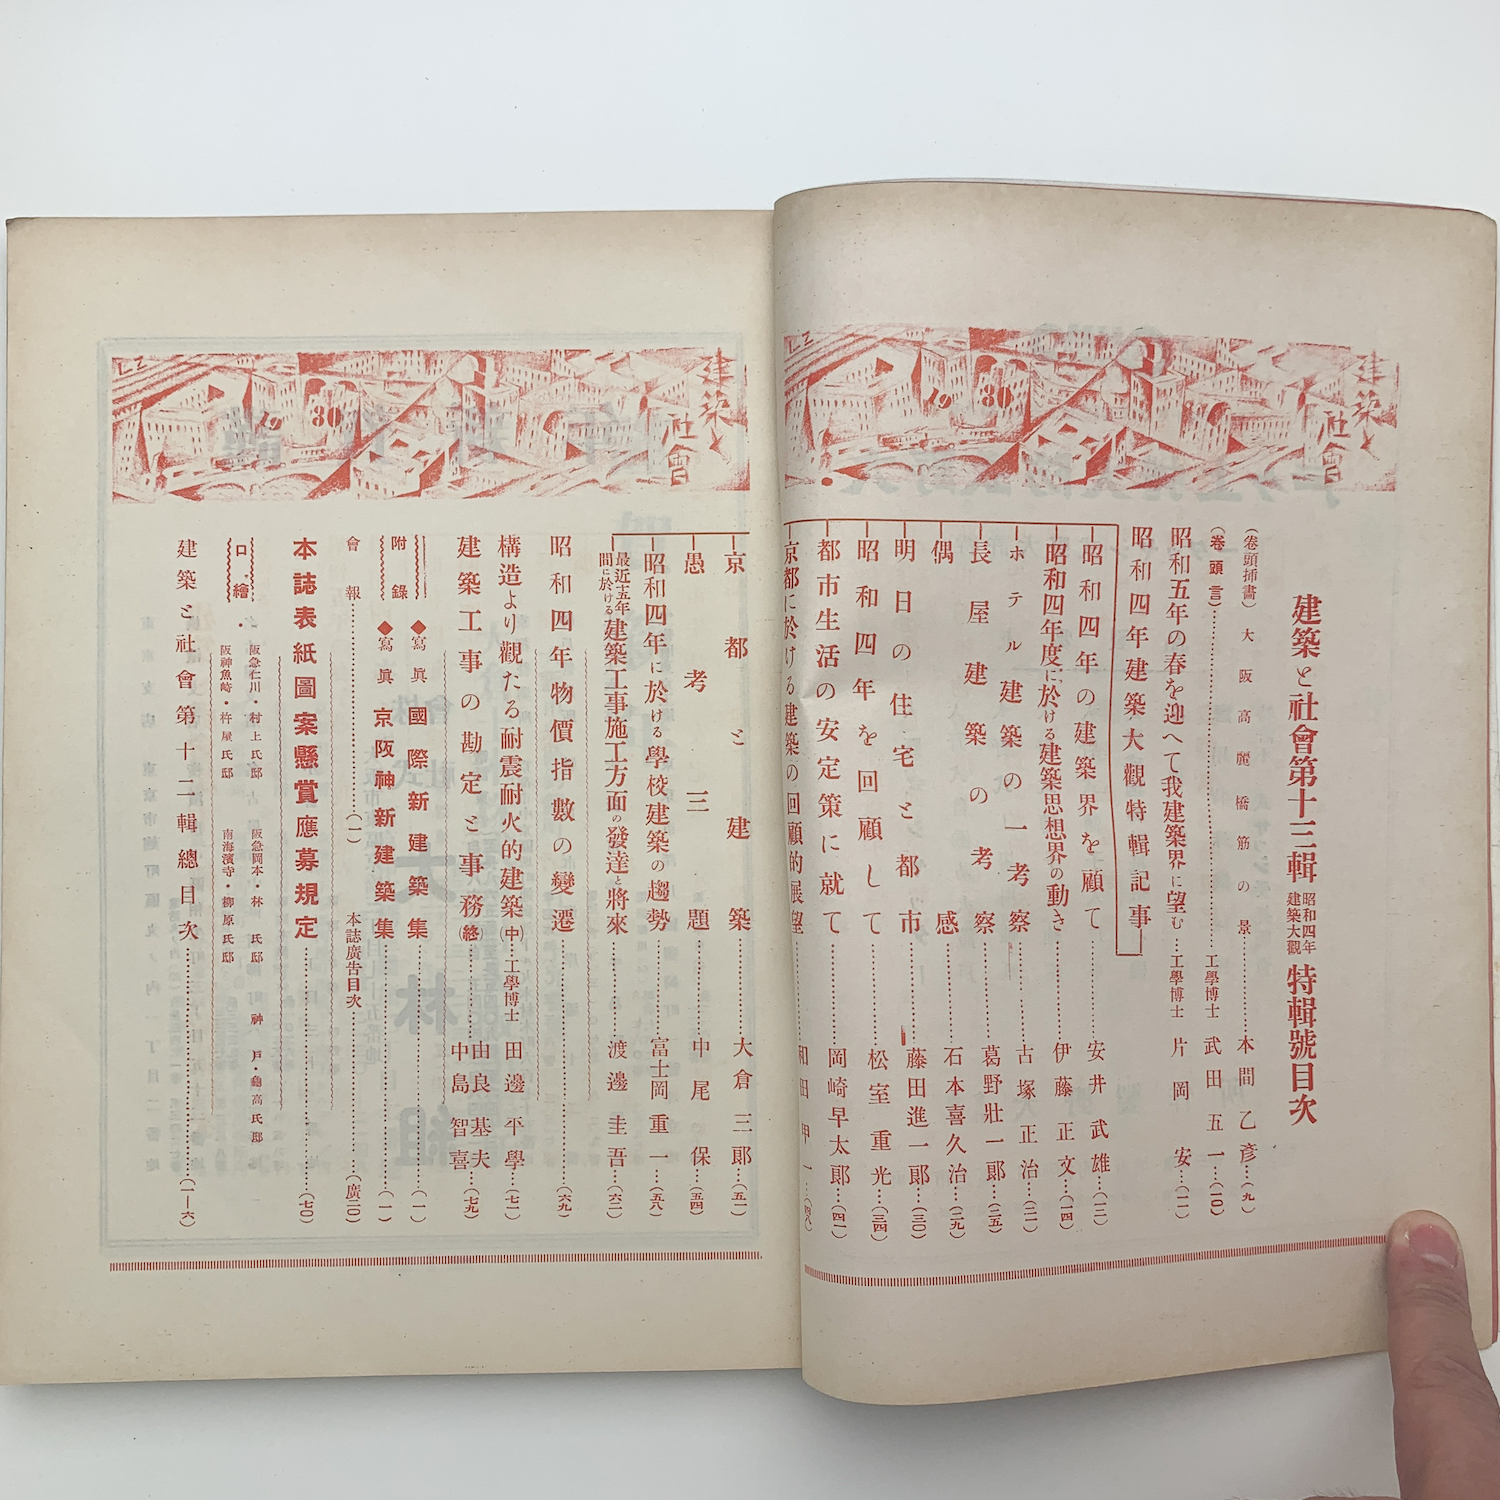 建築と社會
19 30
LZ
建築と社會第十三輯 昭和四年建築大觀 特輯號目次
(卷頭挿畫) 大阪高麗橋筋の景………本間乙彦…(九)
(卷頭言)………工學博士 武田五一…(一〇)
昭和五年の春を迎へて我建築界に望む…工學博士 片岡安…(一一)
昭和四年建築大觀特輯記事
昭和四年の建築界を顧て………安井武雄…(一二)
昭和四年度に於ける建築思想界の動き………伊藤正文…(一四)
ホテル建築の一考察………古塚正治…(二一)
長屋建築の考察………葛野壯一郎…(二五)
偶感………石本喜久治…(二九)
明日の住宅と都市………藤田進一郎…(三〇)
昭和四年を回顧して………松室重光…(三四)
都市生活の安定策に就て………岡崎早太郎…(四一)
京都に於ける建築の回顧的展望………和田甲一…(四八)
建築と社會
19 30
LZ
京都と建築………大倉三郎…(五一)
愚考三題………中尾保…(五四)
昭和四年に於ける學校建築の趨勢………富士岡重一…(五八)
最近十五年間に於ける建築工事施工方面の發達と將來………渡邊圭吾…(六二)
昭和四年物價指數の變遷………(六九)
構造より觀たる耐震耐火的建築(中)…工學博士 田邊平學…(七一)
建築工事の勘定と事務(終)………由良基夫 中島智喜…(七九)
附錄 ◆寫眞 國際新建築集………(一)
◆寫眞 京阪神新建築集………(一)
會報………(一) 本誌廣告目次………(廣二〇)
本誌表紙圖案懸賞應募規定………(七〇)
口繪・ 阪急仁川・村上氏邸 阪急岡本・林氏邸 神戸・龜高氏邸
阪神魚崎・杵屋氏邸 南海濱寺・柳原氏邸
建築と社會第十二輯總目次………(一—六)